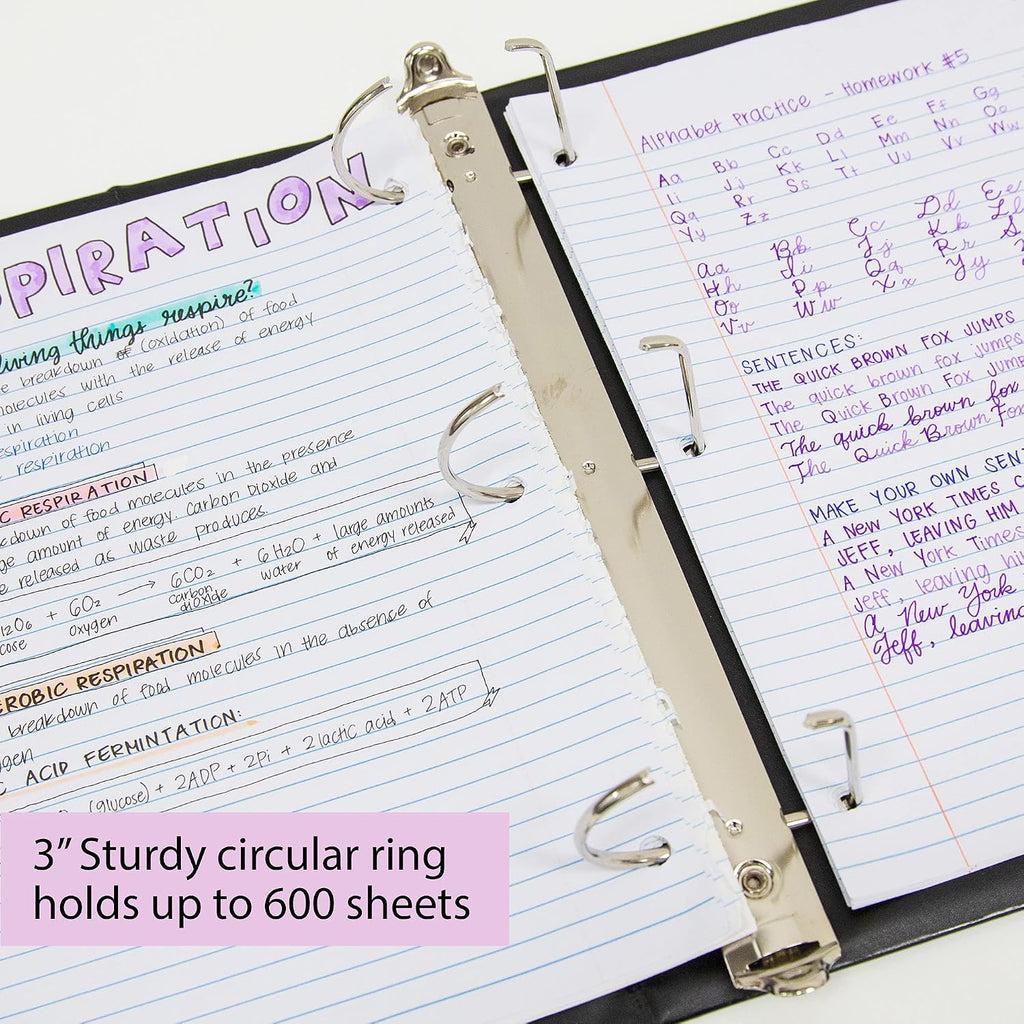 PIRATION
living things respire?
breakdown of (oxidation) of food
molecules with the release of energy
in living cells
respiration
respiration
C RESPIRATION
down of food molecules in the presence
amount of energy. Carbon Dioxide and
released as waste produces.
+ 6O₂ → 6CO₂ + 6H₂O + large amounts
oxygen carbon dioxide water of energy released
EROBIC RESPIRATION
breakdown of food molecules in the absence of
gen
C ACID FERMINTATION:
(glucose) + 2ADP + 2Pi + 2 lactic acid + 2ATP
Alphabet Practice - Homework #5
Aa Bb Cc Dd Ee Ff Gg
Ii Jj Kk Ll Mm Nn Oo
Qq Rr Ss Tt Uu Vv Ww
Yy Zz
Aa Bb Cc Dd Ee
Hh Ii Jj Kk Ll
Oo Pp Qq Rr S
Vv Ww Xx Yy
SENTENCES:
THE QUICK BROWN FOX JUMPS
The quick brown fox jumps
The Quick Brown Fox Jump
The quick brown fox
The Quick Brown Fox
MAKE YOUR OWN SENT
A NEW YORK TIMES C
JEFF, LEAVING HIM
A New York Times
Jeff, leaving hi
A New York
Jeff, leaving
3” Sturdy circular ring
holds up to 600 sheets